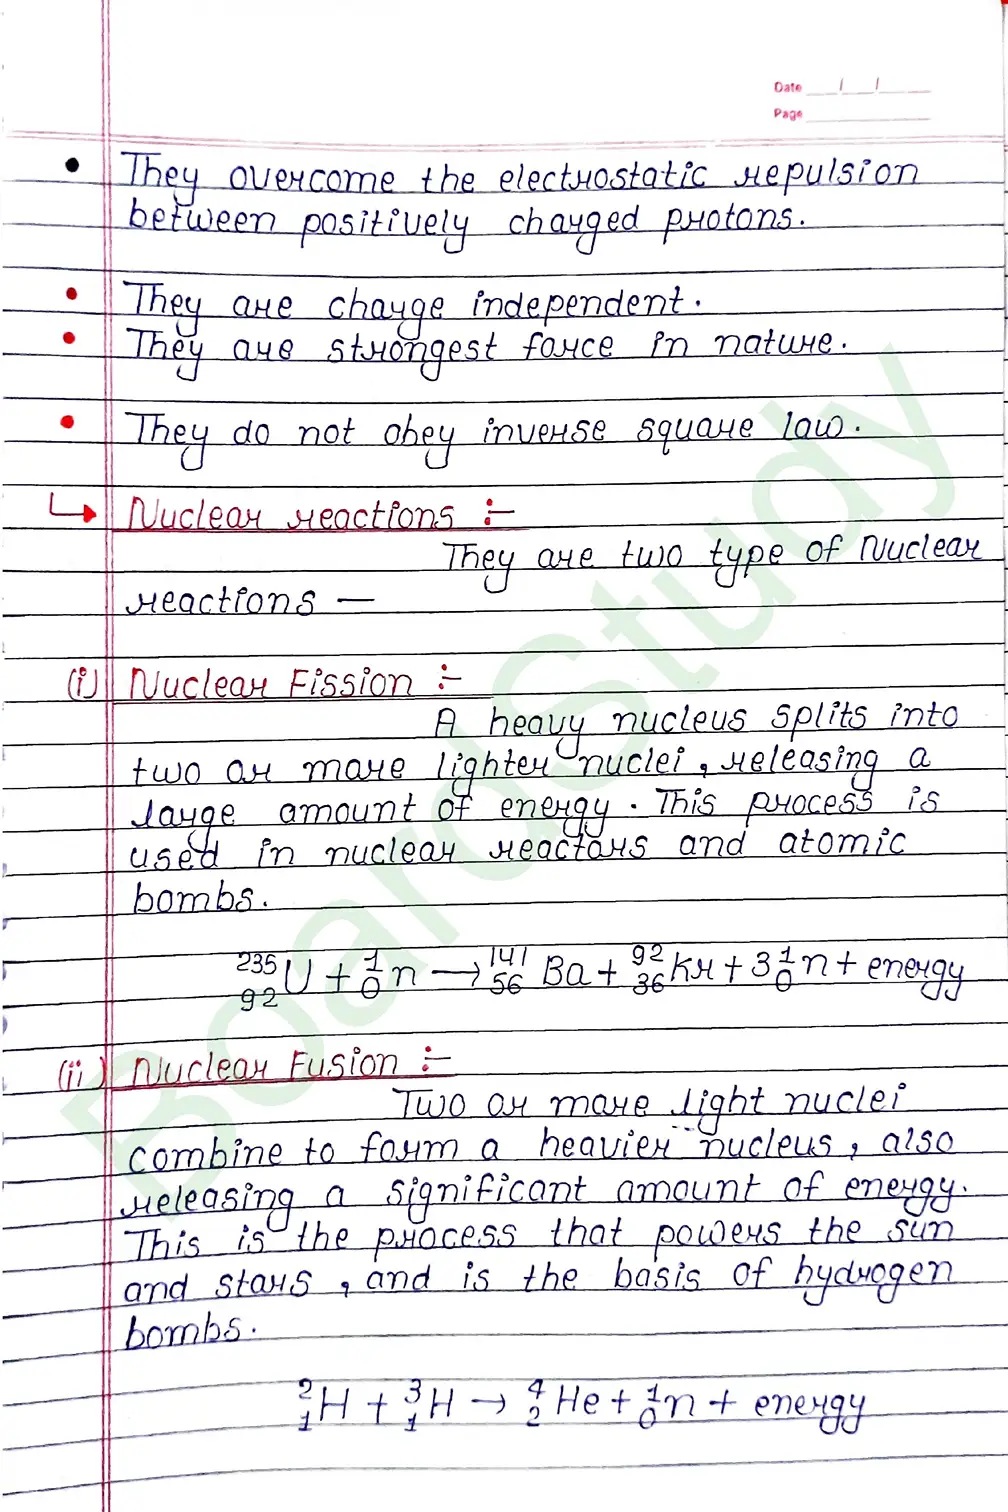 Date ___/___/___
Page
• They overcome the electrostatic repulsion
between positively charged protons.
• They are charge independent.
• They are strongest force in nature.
• They do not obey inverse square law.
↳ Nuclear reactions :-
They are two type of Nuclear
reactions —
(i) Nuclear Fission :-
A heavy nucleus splits into
two or more lighter nuclei, releasing a
large amount of energy. This process is
used in nuclear reactors and atomic
bombs.
²³⁵₉₂U + ¹₀n → ¹⁴¹₅₆Ba + ⁹²₃₆Kr + 3¹₀n + energy
(ii) Nuclear Fusion :-
Two or more light nuclei
combine to form a heavier nucleus, also
releasing a significant amount of energy.
This is the process that powers the sun
and stars, and is the basis of hydrogen
bombs.
²₁H + ³₁H → ⁴₂He + ¹₀n + energy
BoardStudy